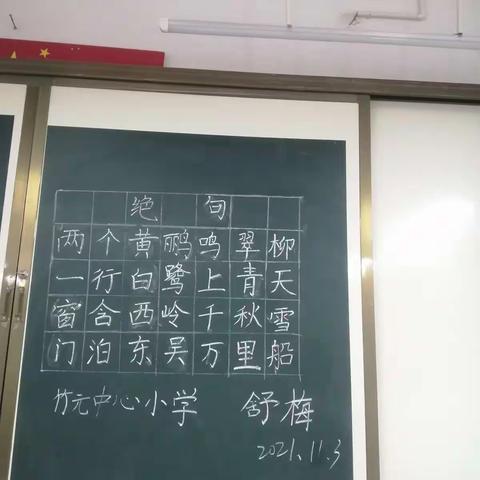 绝句
两个黄鹂鸣翠柳
一行白鹭上青天
窗含西岭千秋雪
门泊东吴万里船
竹元中心小学 舒梅
2021.11.3